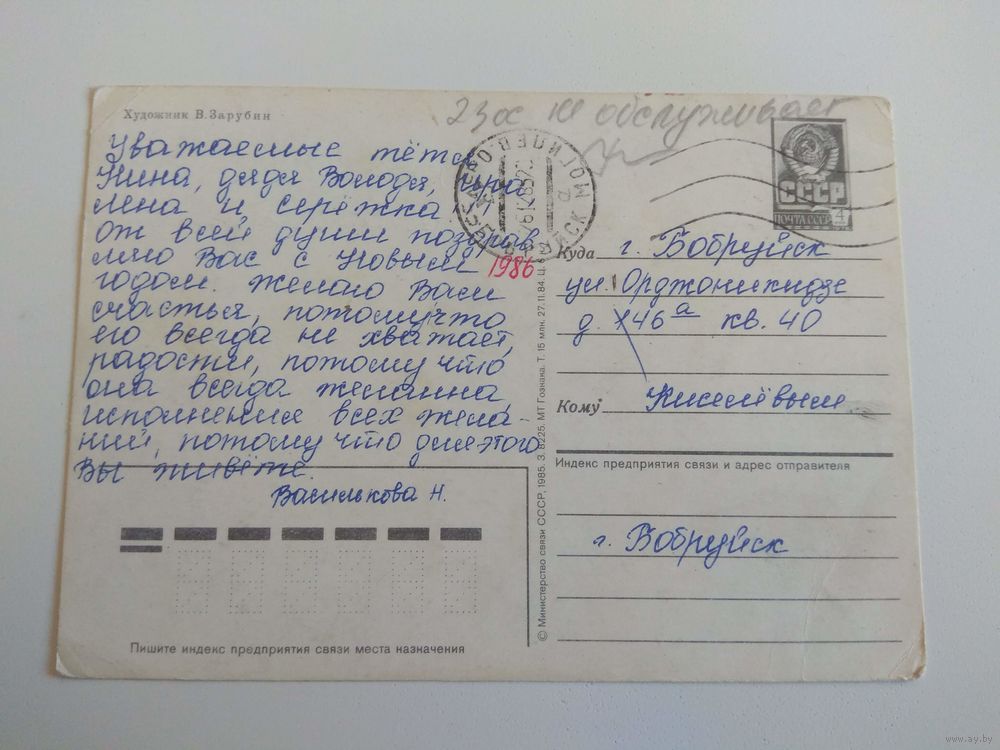 Художник В.Зарубин
23 ос не обслуживает
Уважаемые тётя
Нина, дядя Володя, Ира
Лена и Сережка.
От всей души поздрав
ляю Вас с Новым
годом. Желаю Вам
счастья, потомучто
его всегда не хватает,
радости, потому что
она всегда желанна
исполнения всех жела-
ний, потому что для этого
Вы живёте.
Василькова Н.
1986
СССР
ПОЧТА СССР
4
Куда г. Бобруйск
ул. Орджоникидзе
д. 146а кв. 40
Кому Киселёвым
Индекс предприятия связи и адрес отправителя
г. Бобруйск
© Министерство связи СССР, 1985. З. 8225. МТ Гознака. Т. 15 млн. 27.11.84. Ц.
Пишите индекс предприятия связи места назначения
www.ay.by